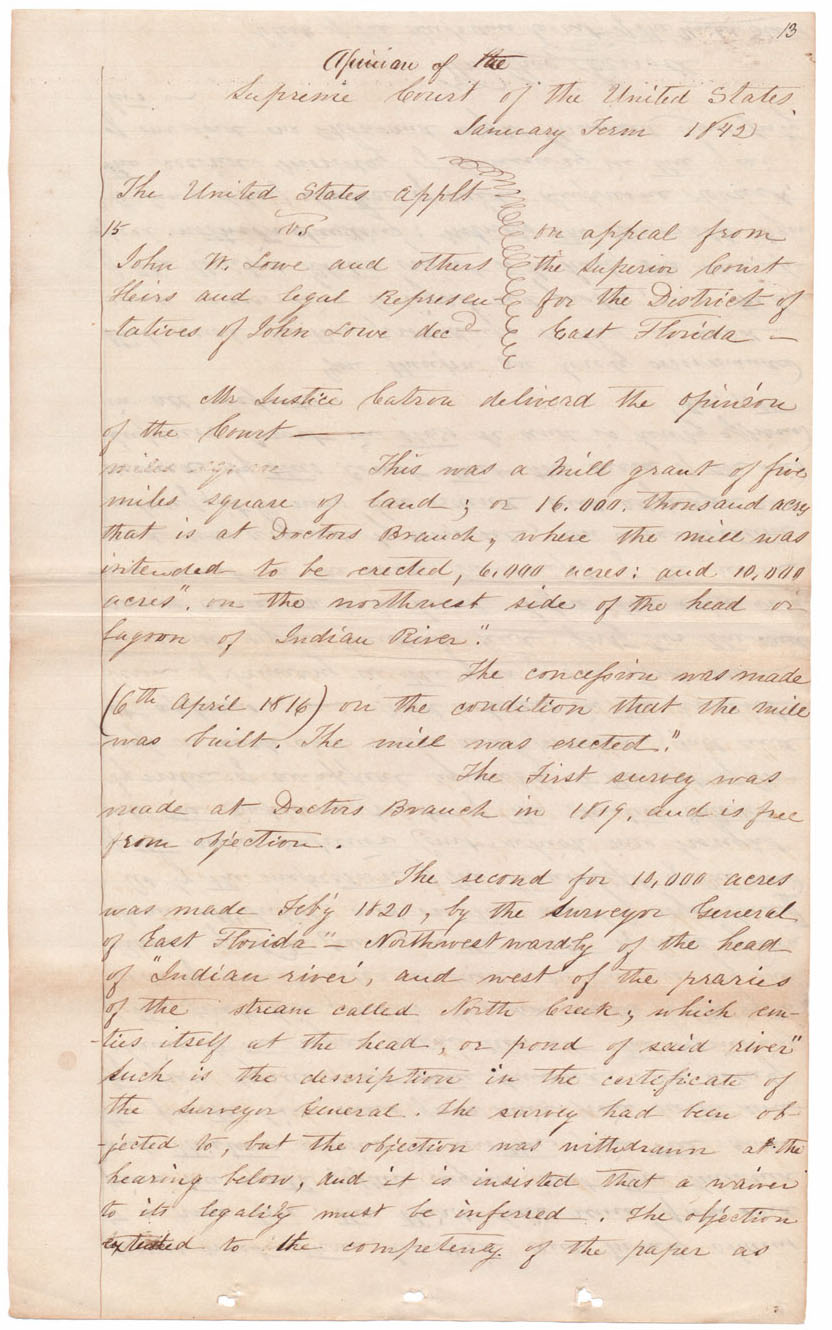 13
Opinion of the
Supreme Court of the United States.
January Term 1842
The United States Applt
15 vs on appeal from
John W. Lowe and others the Superior Court
Heirs and legal Represen- for the District of
-tatives of John Lowe decd East Florida —
Mr Justice Catron deliverd the opinion
of the Court —
This was a Mill grant of five
miles square of land; or 16.000. thousand acres
that is at Doctors Branch, where the mill was
intended to be erected, 6,000 acres: and 10,000
acres", on the northwest side of the head or
lagoon of Indian River".
The concession was made
(6th April 1816) on the condition that the mill
was built. The mill was erected."
The First survey was
made at Doctors Branch in 1819, and is free
from objection.
The second for 10,000 acres
was made Feb'y 1820, by the Surveyor General
of East Florida "— Northwestwardly of the head
of "Indian river', and west of the praries
of the stream called North Creek, which em-
-ties itself at the head, or pond of said river"
Such is the description in the certificate of
the Surveyor General. The survey had been ob-
-jected to, but the objection was withdrawn at the
hearing below, and it is insisted that a waiver
to its legality must be inferred. The objection
extended to the competency of the paper as